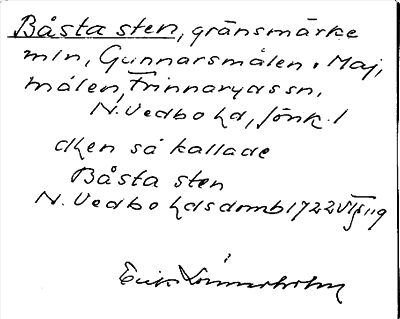 Båsta sten, gränsmärke
mln, Gunnarsmålen o Maj,
målen, Frinnaryds sn,
N. Vedbo hd, Jönk. l
dhen så kallade
Båsta sten
N. Vedbo hdsdomb 1722 VI/ 119
Erik